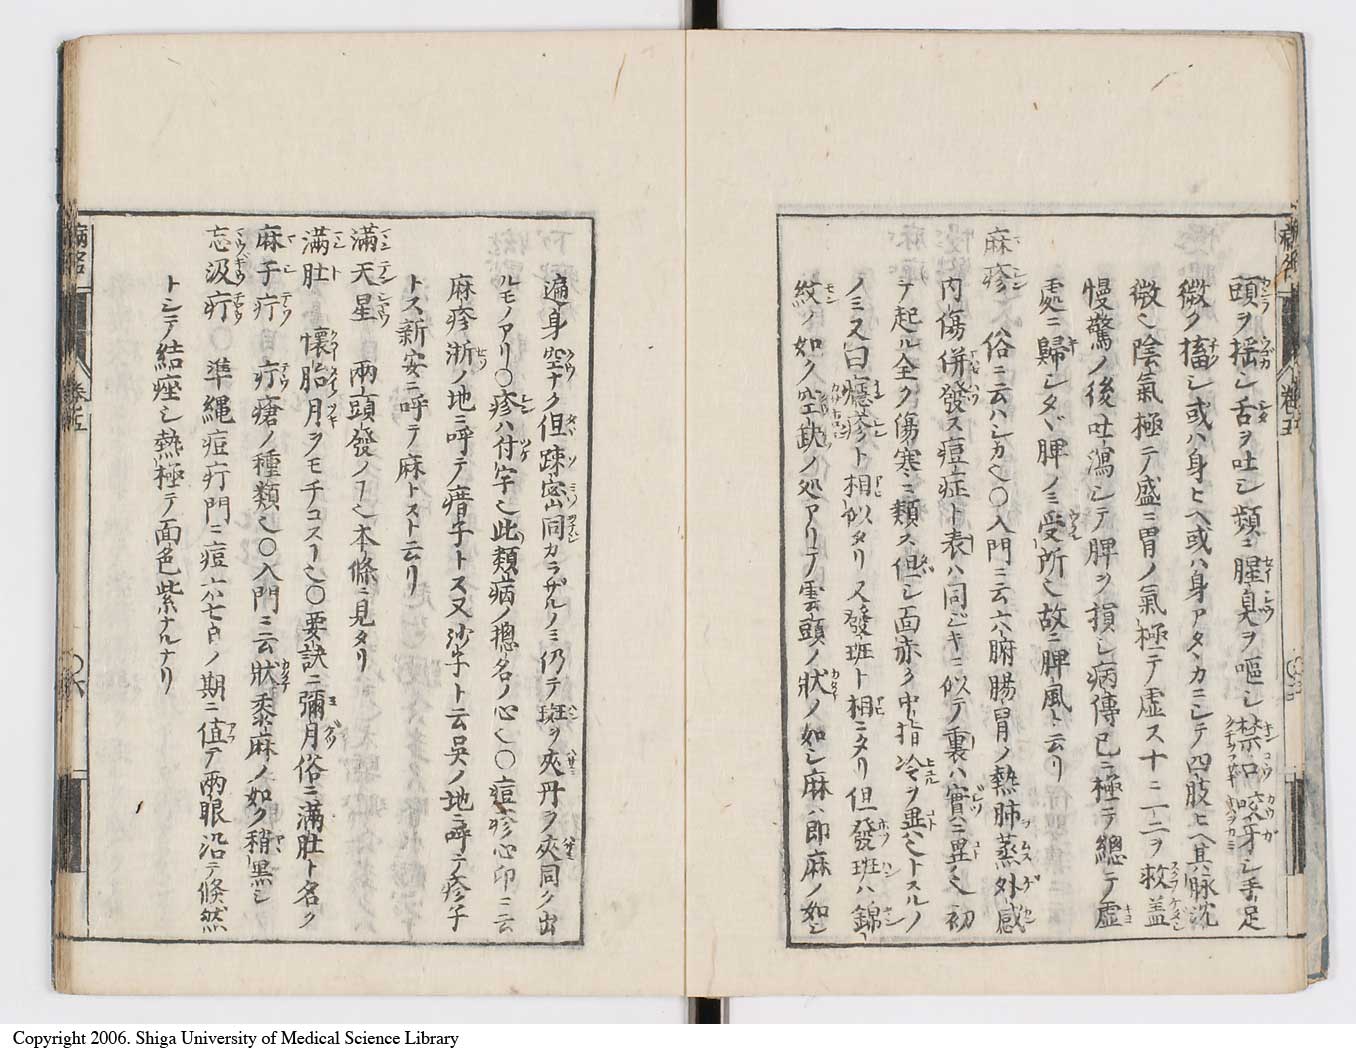 頭ヲ揺シ舌ヲ吐シ頻ニ腥臭ヲ嘔シ禁口咬牙シ手足
微ク搐シ或ハ身ヒヘ或ハ身アタヽカニシテ四肢ヒヘ其脉沈
微也陰氣極テ盛ニ胃ノ氣極テ虚ス十ニ一二ヲ救蓋
慢驚ノ後吐瀉シテ脾ヲ損シ病傳已ニ極テ總テ虚
處ニ歸シタヾ脾ノミ受所也故ニ脾風ト云リ
麻疹 俗ニ云ハシカ也〇入門ニ云六腑腸胃ノ熱肺蒸外感
内傷併發ス痘症ト表ハ同ジキニ似テ裏ハ實ハニ異ノ也初
ヲ起ル全ク傷寒ニ類ス但シ面赤ク中指冷ヲ異ヘトスルノ
ノミス白癮疹ト相似タリ又發班ト相ニタリ但發班ハ錦
紋ノ如ク空缺ノ処アリテ雲頭ノ状ノ如シ麻ハ即麻ノ如シ
遍身空ナク但疎密同カラザルノミ仍テ斑ヲ夾丹ヲ夾同ク出
ルモノアリ〇疹ハ付字也此類病ノ摠名ノ心也〇痘疹心印ニ云
麻疹浙ノ地ニ呼テ㾱子トス又沙子ト云吳ノ地ニ呼テ疹子
トス新安ニ呼テ麻トスト云リ
滿天星 兩頭發ノ下也本條ニ見タリ
滿肚 懐胎月ヲモチコスー也〇要訣ニ彌月俗ニ滿肚ト名ク
麻子疔 疔瘡ノ種類也〇入門ニ云狀黍麻ノ如ク稍黒シ
忘汲疔 〇準縄痘疔門ニ痘六七日ノ期ニ値テ兩眼沿テ倏然
トシテ結痤シ熱極テ面色紫ナルナリ
病名
卷五
Copyright 2006. Shiga University of Medical Science Library